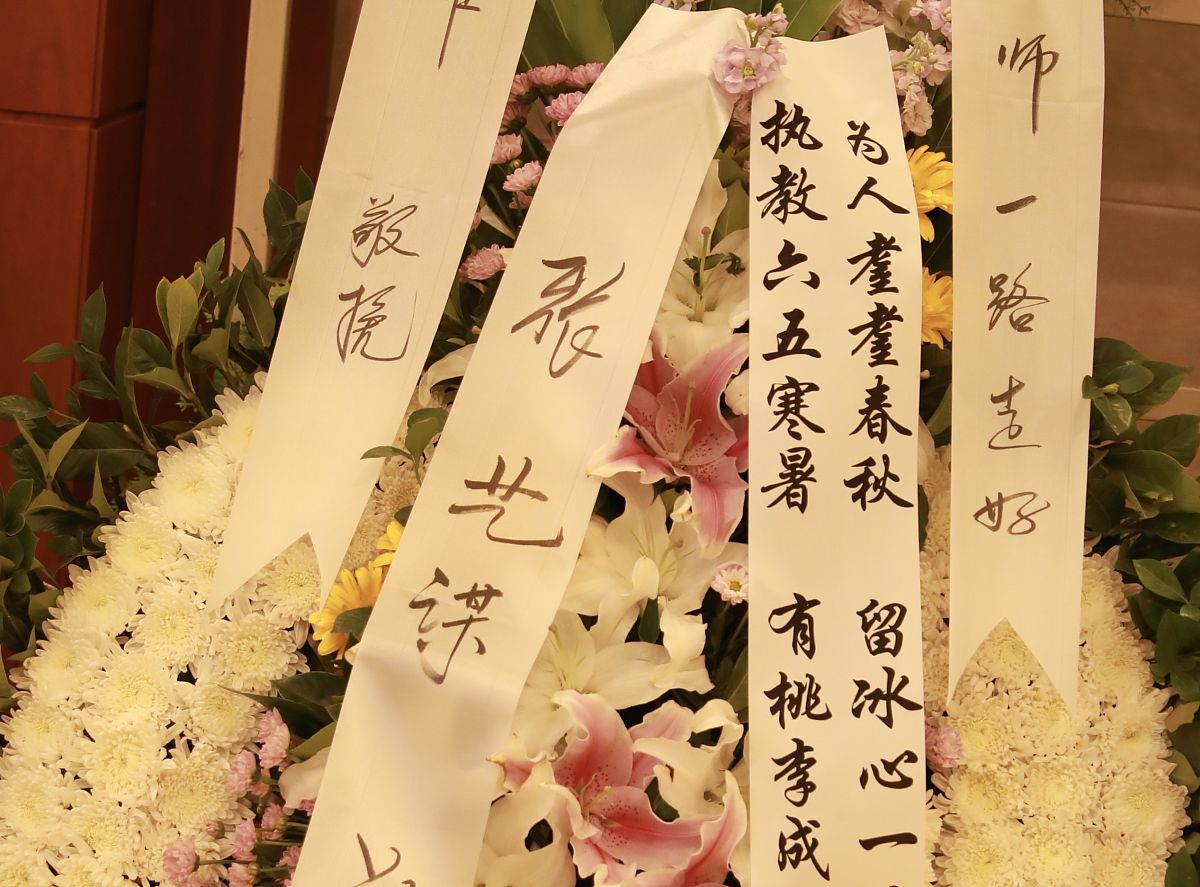 师一路走好
为人耄耋春秋 留冰心一
执教六五寒暑 有桃李成
张艺谋
敬挽